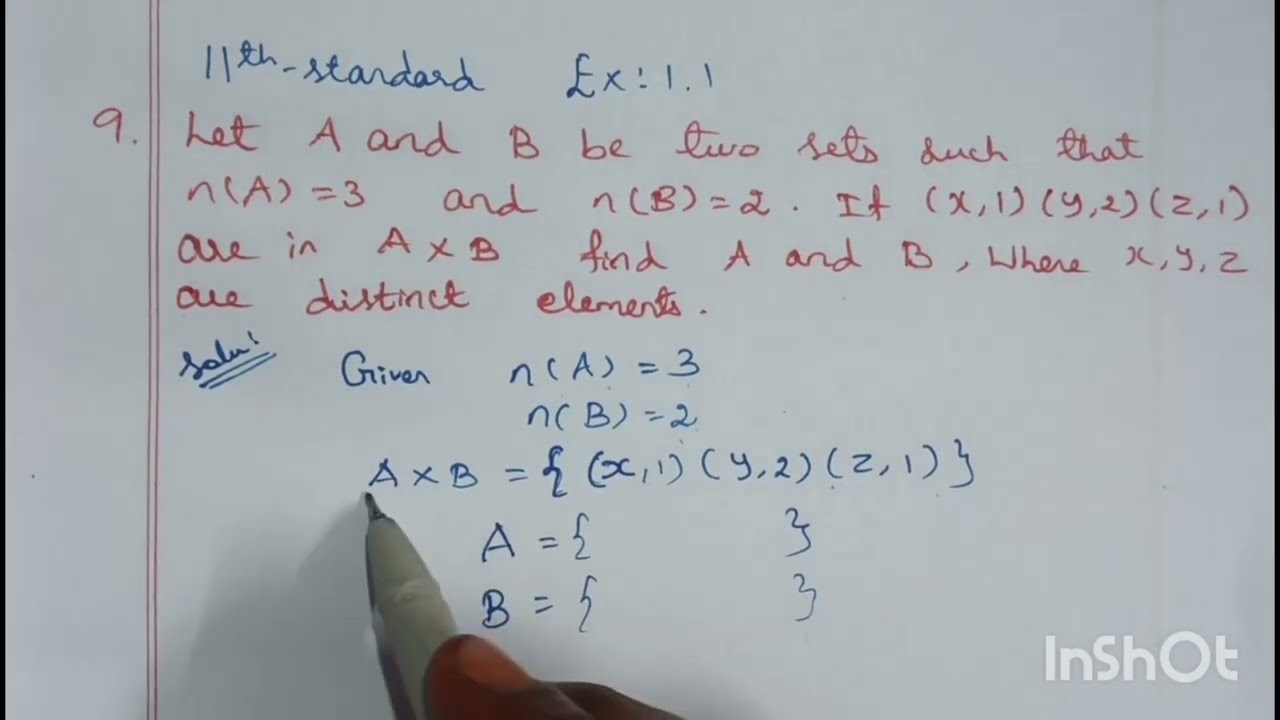 11th-standard Ex:1.1
9. Let A and B be two sets such that
n(A)=3 and n(B)=2. If (x,1)(y,2)(z,1)
are in A×B find A and B, where x,y,z
are distinct elements.
Solu: Given n(A)=3
n(B)=2
A×B={(x,1)(y,2)(z,1)}
A={ }
B={ }
InShOt